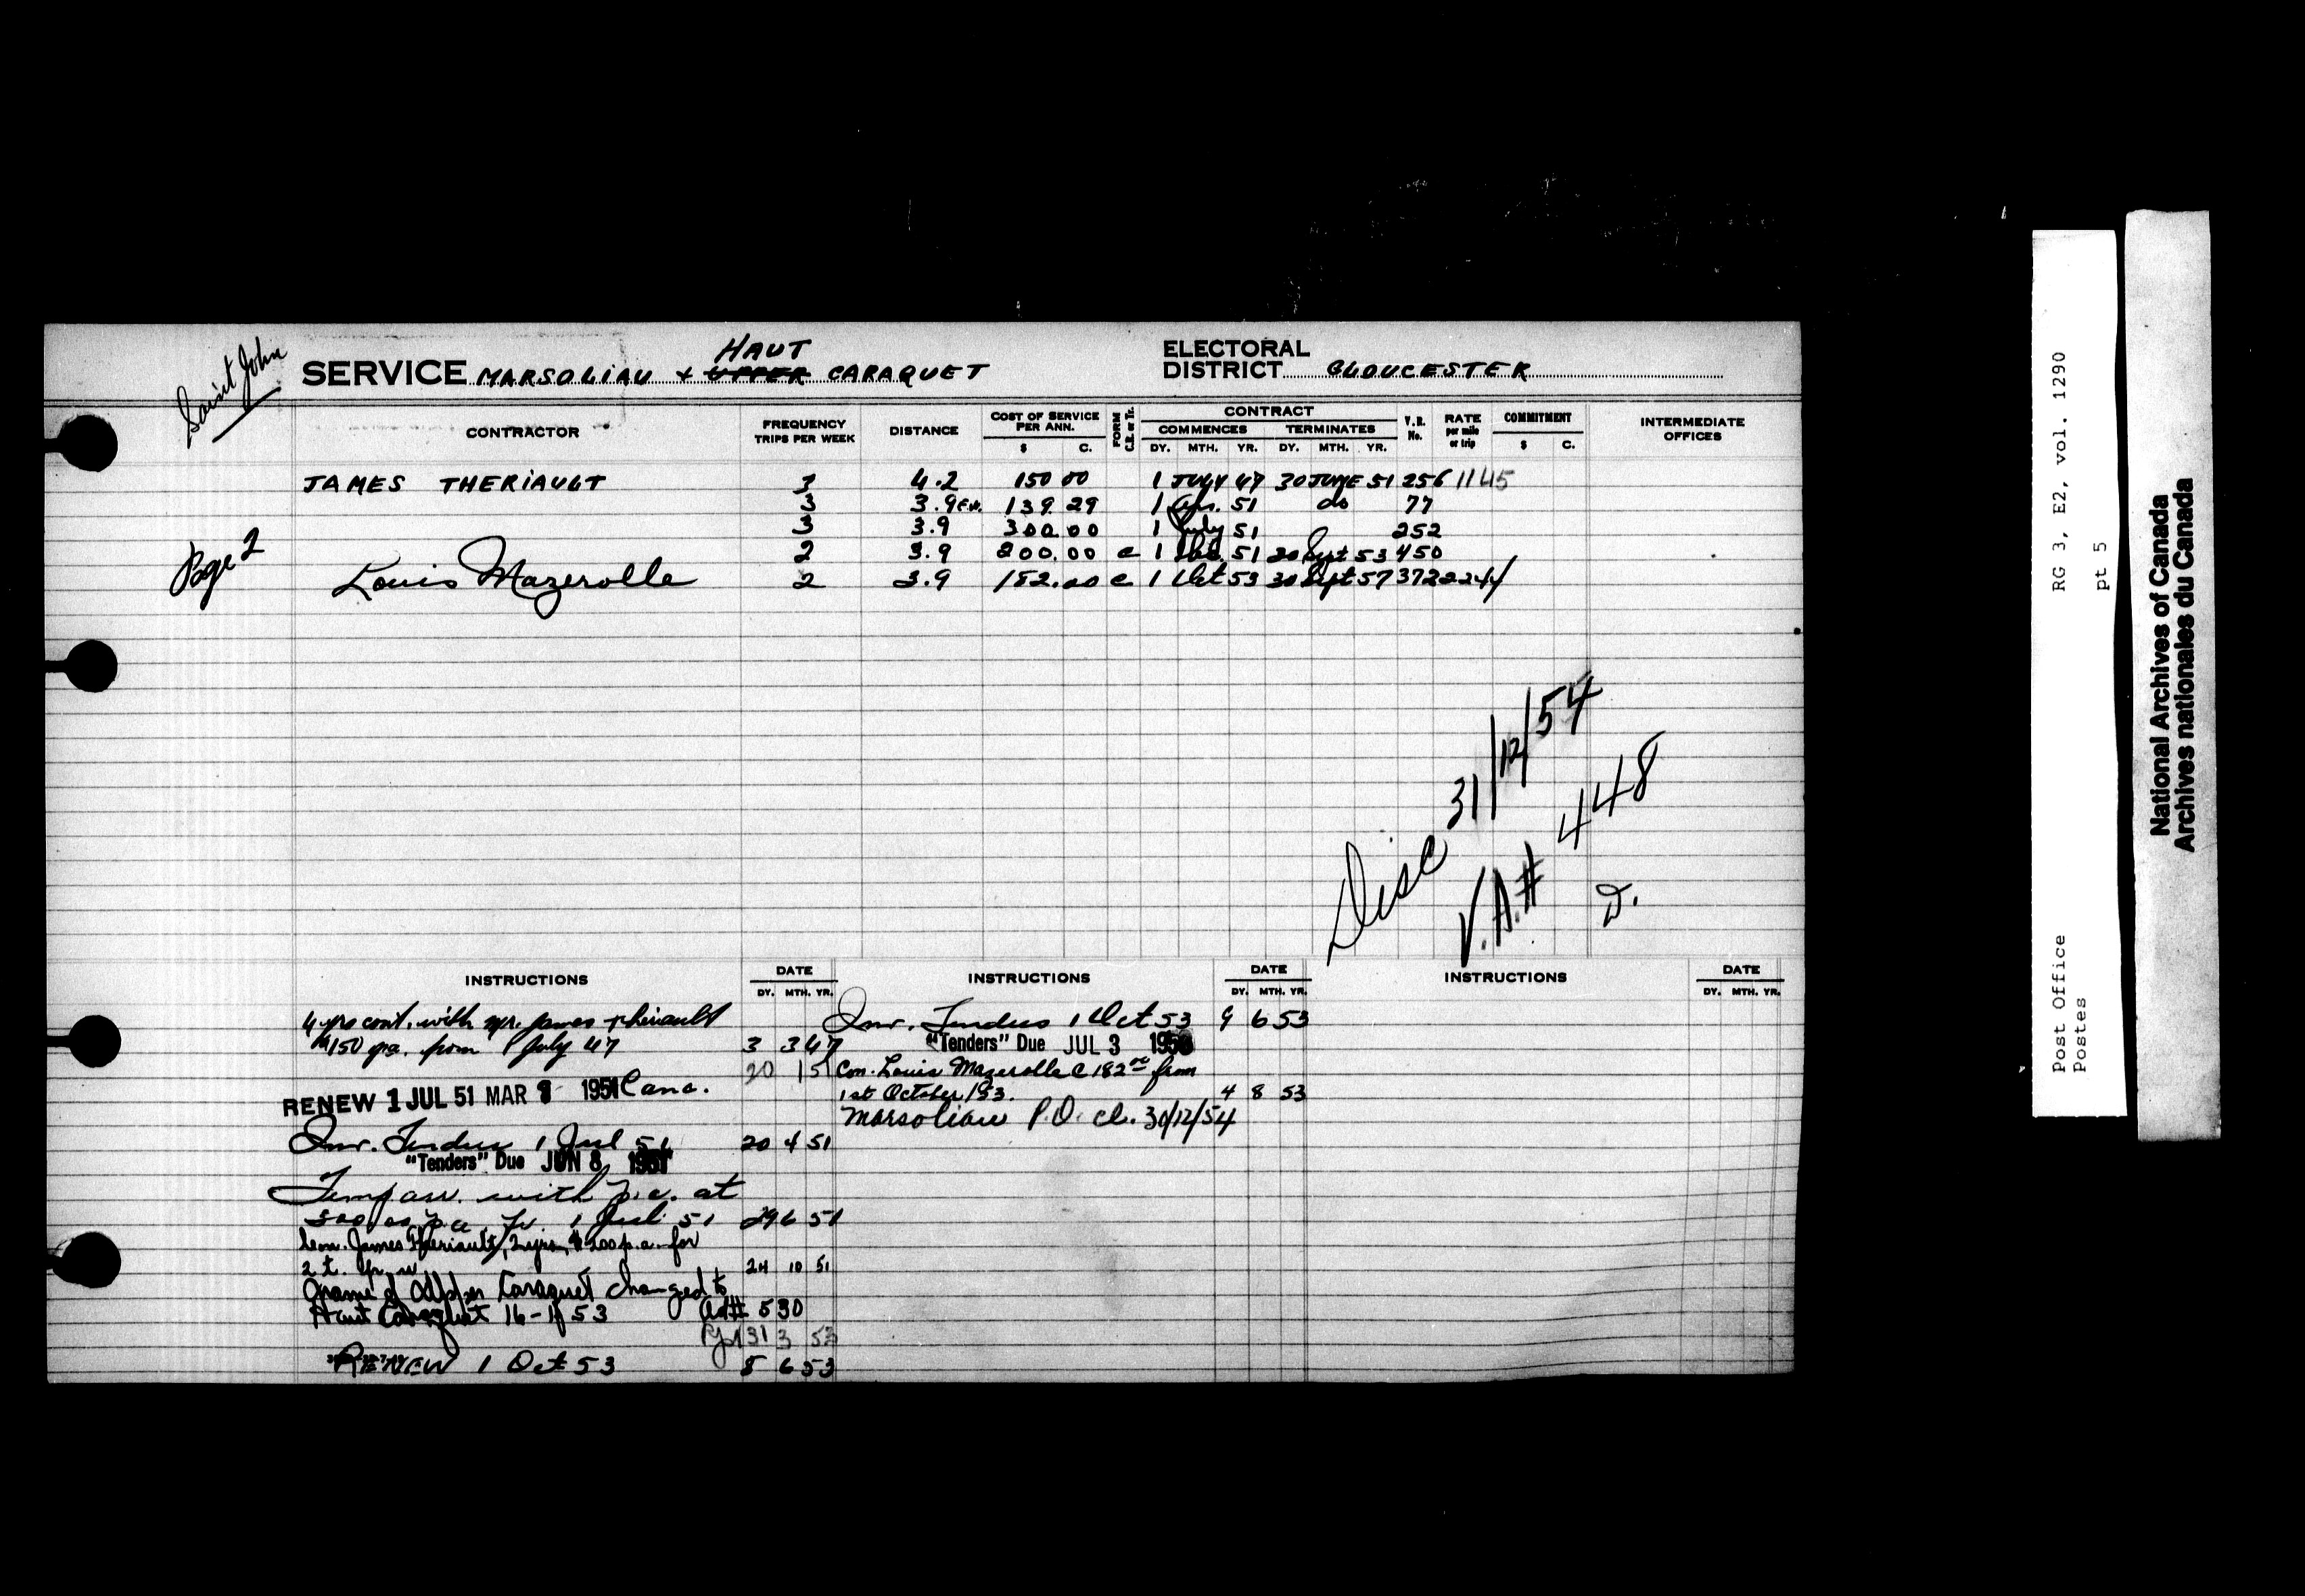 Saint John
HAUT
SERVICE MARSOLIAU & UPPER CARAQUET ELECTORAL DISTRICT GLOUCESTER
CONTRACTOR FREQUENCY TRIPS PER WEEK DISTANCE COST OF SERVICE PER ANN. $ C. FORM C.R. or Tr. CONTRACT COMMENCES DY. MTH. YR. TERMINATES DY. MTH. YR. V.R. No. RATE per mile or trip COMMITMENT $ C. INTERMEDIATE OFFICES
JAMES THERIAULT 3 4.2 150 00 1 JULY 47 30 JUNE 51 256 1145
3 3.9 139.29 1 Apr. 51 do 77
3 3.9 300.00 1 July 51 252
Page 2
2 3.9 200.00 c 1 51 30 Sept 53 450
Louis Mazerolle 2 3.9 182.00 c 1 Oct 53 30 Sept 57 372
Disc 31/12/54
V.A.# 448
D.
INSTRUCTIONS DATE DY. MTH. YR. INSTRUCTIONS DATE DY. MTH. YR. INSTRUCTIONS DATE DY. MTH. YR.
4 yrs cont. with Mr. James Theriault
$150 pa. from 1 July 47 3 3 47
20 1 51
RENEW 1 JUL 51 MAR 9 1951 Canc.
Inv. Tenders 1 Jul 51 20 4 51
"Tenders" Due JUN 8 1951
Temp arr. with p.c. at
300.00 p.a. fr. 1 Jul 51 29 6 51
Con. James Theriault, 2 yrs, $200 p.a. for
2 t. p. w. 24 10 51
Name of Upper Caraquet changed to
Haut Caraquet 16-1-53 530
31 3 53
RENEW 1 Oct 53 8 6 53
Inv. Tenders 1 Oct 53 9 6 53
"Tenders" Due JUL 3 1953
Con. Louis Mazerolle @ 182.00 from
1st October/53. 4 8 53
Marsoliau P.O. cl. 30/12/54
Post Office RG 3, E2, vol. 1290
Postes pt 5
National Archives of Canada
Archives nationales du Canada